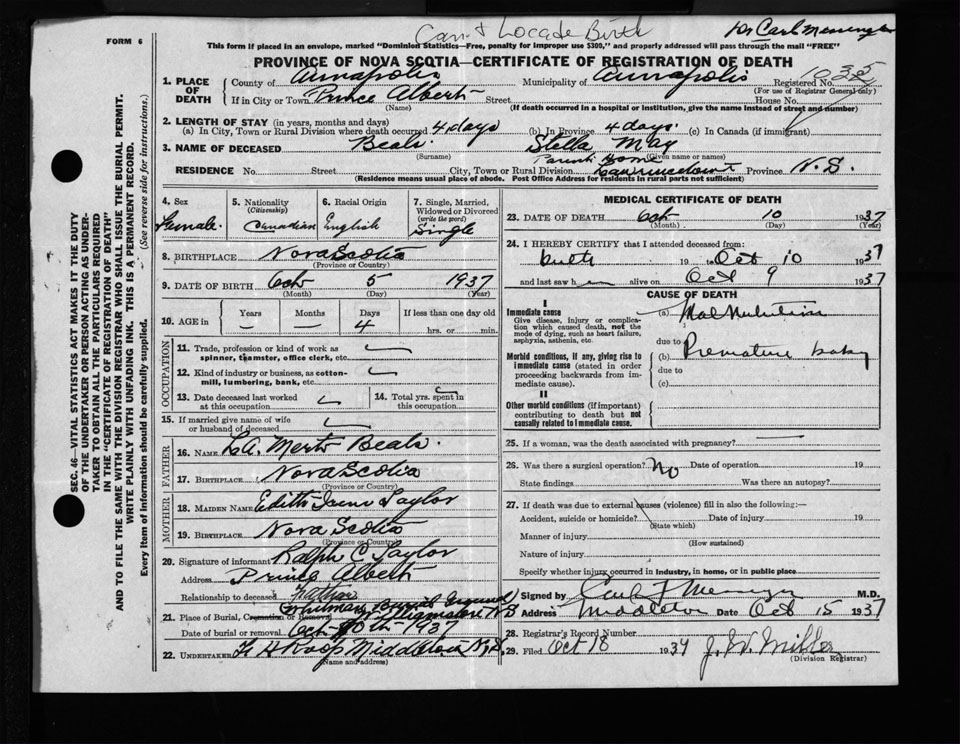 Can't Locate Birth
Dr Carl Messenger
FORM 6
This form if placed in an envelope, marked "Dominion Statistics—Free, penalty for improper use $300," and properly addressed will pass through the mail "FREE"
PROVINCE OF NOVA SCOTIA—CERTIFICATE OF REGISTRATION OF DEATH
1. PLACE OF DEATH
County of Annapolis Municipality of Annapolis Registered No.
(For use of Registrar General only)
If in City or Town Prince Albert Street House No.
(Name) (If death occurred in a hospital or institution, give the name instead of street and number)
2. LENGTH OF STAY (in years, months and days)
(a) In City, Town or Rural Division where death occurred 4 days (b) In Province 4 days. (c) In Canada (if immigrant)
3. NAME OF DECEASED Beals. Stella May
(Surname) (Given name or names)
Parents Home
RESIDENCE No. Street City, Town or Rural Division Lawrencetown Province N.S.
(Residence means usual place of abode. Post Office Address for residents in rural parts not sufficient)
SEC. 46—VITAL STATISTICS ACT MAKES IT THE DUTY
OF THE UNDERTAKER OR PERSON ACTING AS UNDER-
TAKER TO OBTAIN ALL THE PARTICULARS REQUIRED
IN THE "CERTIFICATE OF REGISTRATION OF DEATH"
AND TO FILE THE SAME WITH THE DIVISION REGISTRAR WHO SHALL ISSUE THE BURIAL PERMIT.
WRITE PLAINLY WITH UNFADING INK. THIS IS A PERMANENT RECORD.
Every item of information should be carefully supplied. (See reverse side for instructions.)
4. Sex
Female.
5. Nationality
(Citizenship)
Canadian
6. Racial Origin
English
7. Single, Married,
Widowed or Divorced
(write the word)
Single
8. BIRTHPLACE Nova Scotia
(Province or Country)
9. DATE OF BIRTH Oct 5 1937
(Month) (Day) (Year)
10. AGE in Years Months Days If less than one day
— — 4 hrs. or min.
OCCUPATION
11. Trade, profession or kind of work as
spinner, teamster, office clerk, etc.
12. Kind of industry or business, as cotton-
mill, lumbering, bank, etc.
13. Date deceased last worked
at this occupation
14. Total yrs. spent in
this occupation
15. If married give name of wife
or husband of deceased
FATHER
16. NAME Merts Beals.
17. BIRTHPLACE Nova Scotia
(Province or Country)
MOTHER
18. MAIDEN NAME Edith Irene Taylor
19. BIRTHPLACE Nova Scotia
(Province or Country)
20. Signature of informant Ralph C Taylor
Address Prince Albert
Relationship to deceased
21. Place of Burial, Cremation or Removal Whitman Burial Ground
N S
Date of burial or removal Oct 10th 1937
22. UNDERTAKER F H Roop Middleton N.S.
(Name and address)
MEDICAL CERTIFICATE OF DEATH
23. DATE OF DEATH Oct 10 1937
(Month) (Day) (Year)
24. I HEREBY CERTIFY that I attended deceased from:
birth 19 to Oct 10 1937
and last saw h alive on Oct 9 1937
CAUSE OF DEATH
I
Immediate cause
Give disease, injury or complica-
tion which caused death, not the
mode of dying, such as heart failure,
asphyxia, asthenia, etc.
(a) Mal Nutrition
due to
Morbid conditions, if any, giving rise to
immediate cause (stated in order
proceeding backwards from im-
mediate cause).
(b) Premature baby
due to
(c)
II
Other morbid conditions (if important)
contributing to death but not
causally related to immediate cause.
25. If a woman, was the death associated with pregnancy? —
26. Was there a surgical operation? No Date of operation 19
State findings Was there an autopsy?
27. If death was due to external causes (violence) fill in also the following:—
Accident, suicide or homicide? Date of injury 19
(State which)
Manner of injury
(How sustained)
Nature of injury
Specify whether injury occurred in industry, in home, or in public place
Signed by Carl F Messenger M.D.
Address Middleton Date Oct 15 1937
28. Registrar's Record Number
29. Filed Oct 18 1937 J. W. Miller
(Division Registrar)